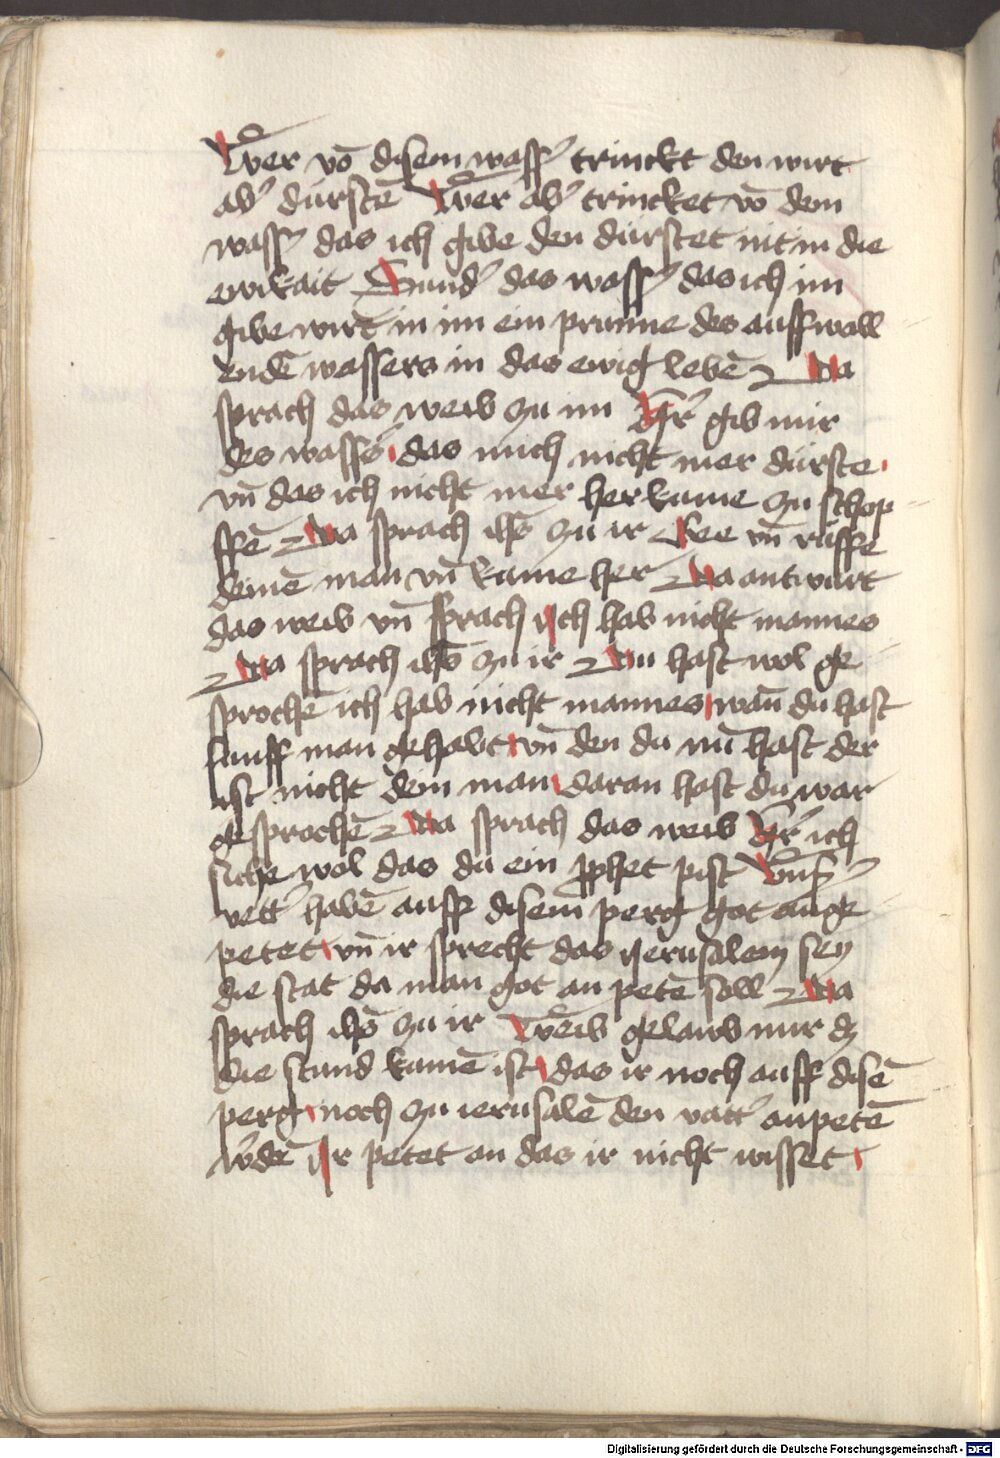 Wer võ disem wasſ᾽ trinckt den wirt
ab᾽ dürstē Wer ab᾽ trincket võ dem
wasſ᾽ das ich gibe den dürstet nit in die
ewikait Sund᾽ das wasſ᾽ das ich im
gibe wirt in im ein prunne des auffwall
endē wassers in das ewig lebē Da
sprach das weib zu im H᾽r gib mir
des wasſs᾽ das mich nicht mer dürste
vn̄ das ich nicht mer her kume zu schop
ffē Da sprach ihs̄ zu ir Gee vn̄ rüffe
deinē man vn̄ kume her Da antwurt
das weib vn̄ sprach Ich hab nicht mannes
Da sprach ihs̄ zu ir Du hast wol ge
sprochē ich hab nicht mannes wan̄ du hast
funff man gehabt vn̄ den du nu̅ hast der
ist nicht dein man daran hast du war
gesprochē Da sprach das weib H᾽r ich
siche wol das du ein ꝓphet pist Vns᾽
vett᾽ habē auff disem perg got ange
petet vn̄ ir sprecht das Jerusalem sey
die stat da man got an petē soll Da
sprach ihs̄ zu ir Weib gelaub mir dz
die stund kumē ist das ir noch auff disē
perg noch zu ierusalē den vatt᾽ anpetē
w᾽dē Ir petet an das ir nicht wisset
Digitalisierung gefördert durch die Deutsche Forschungsgemeinschaft - DFG